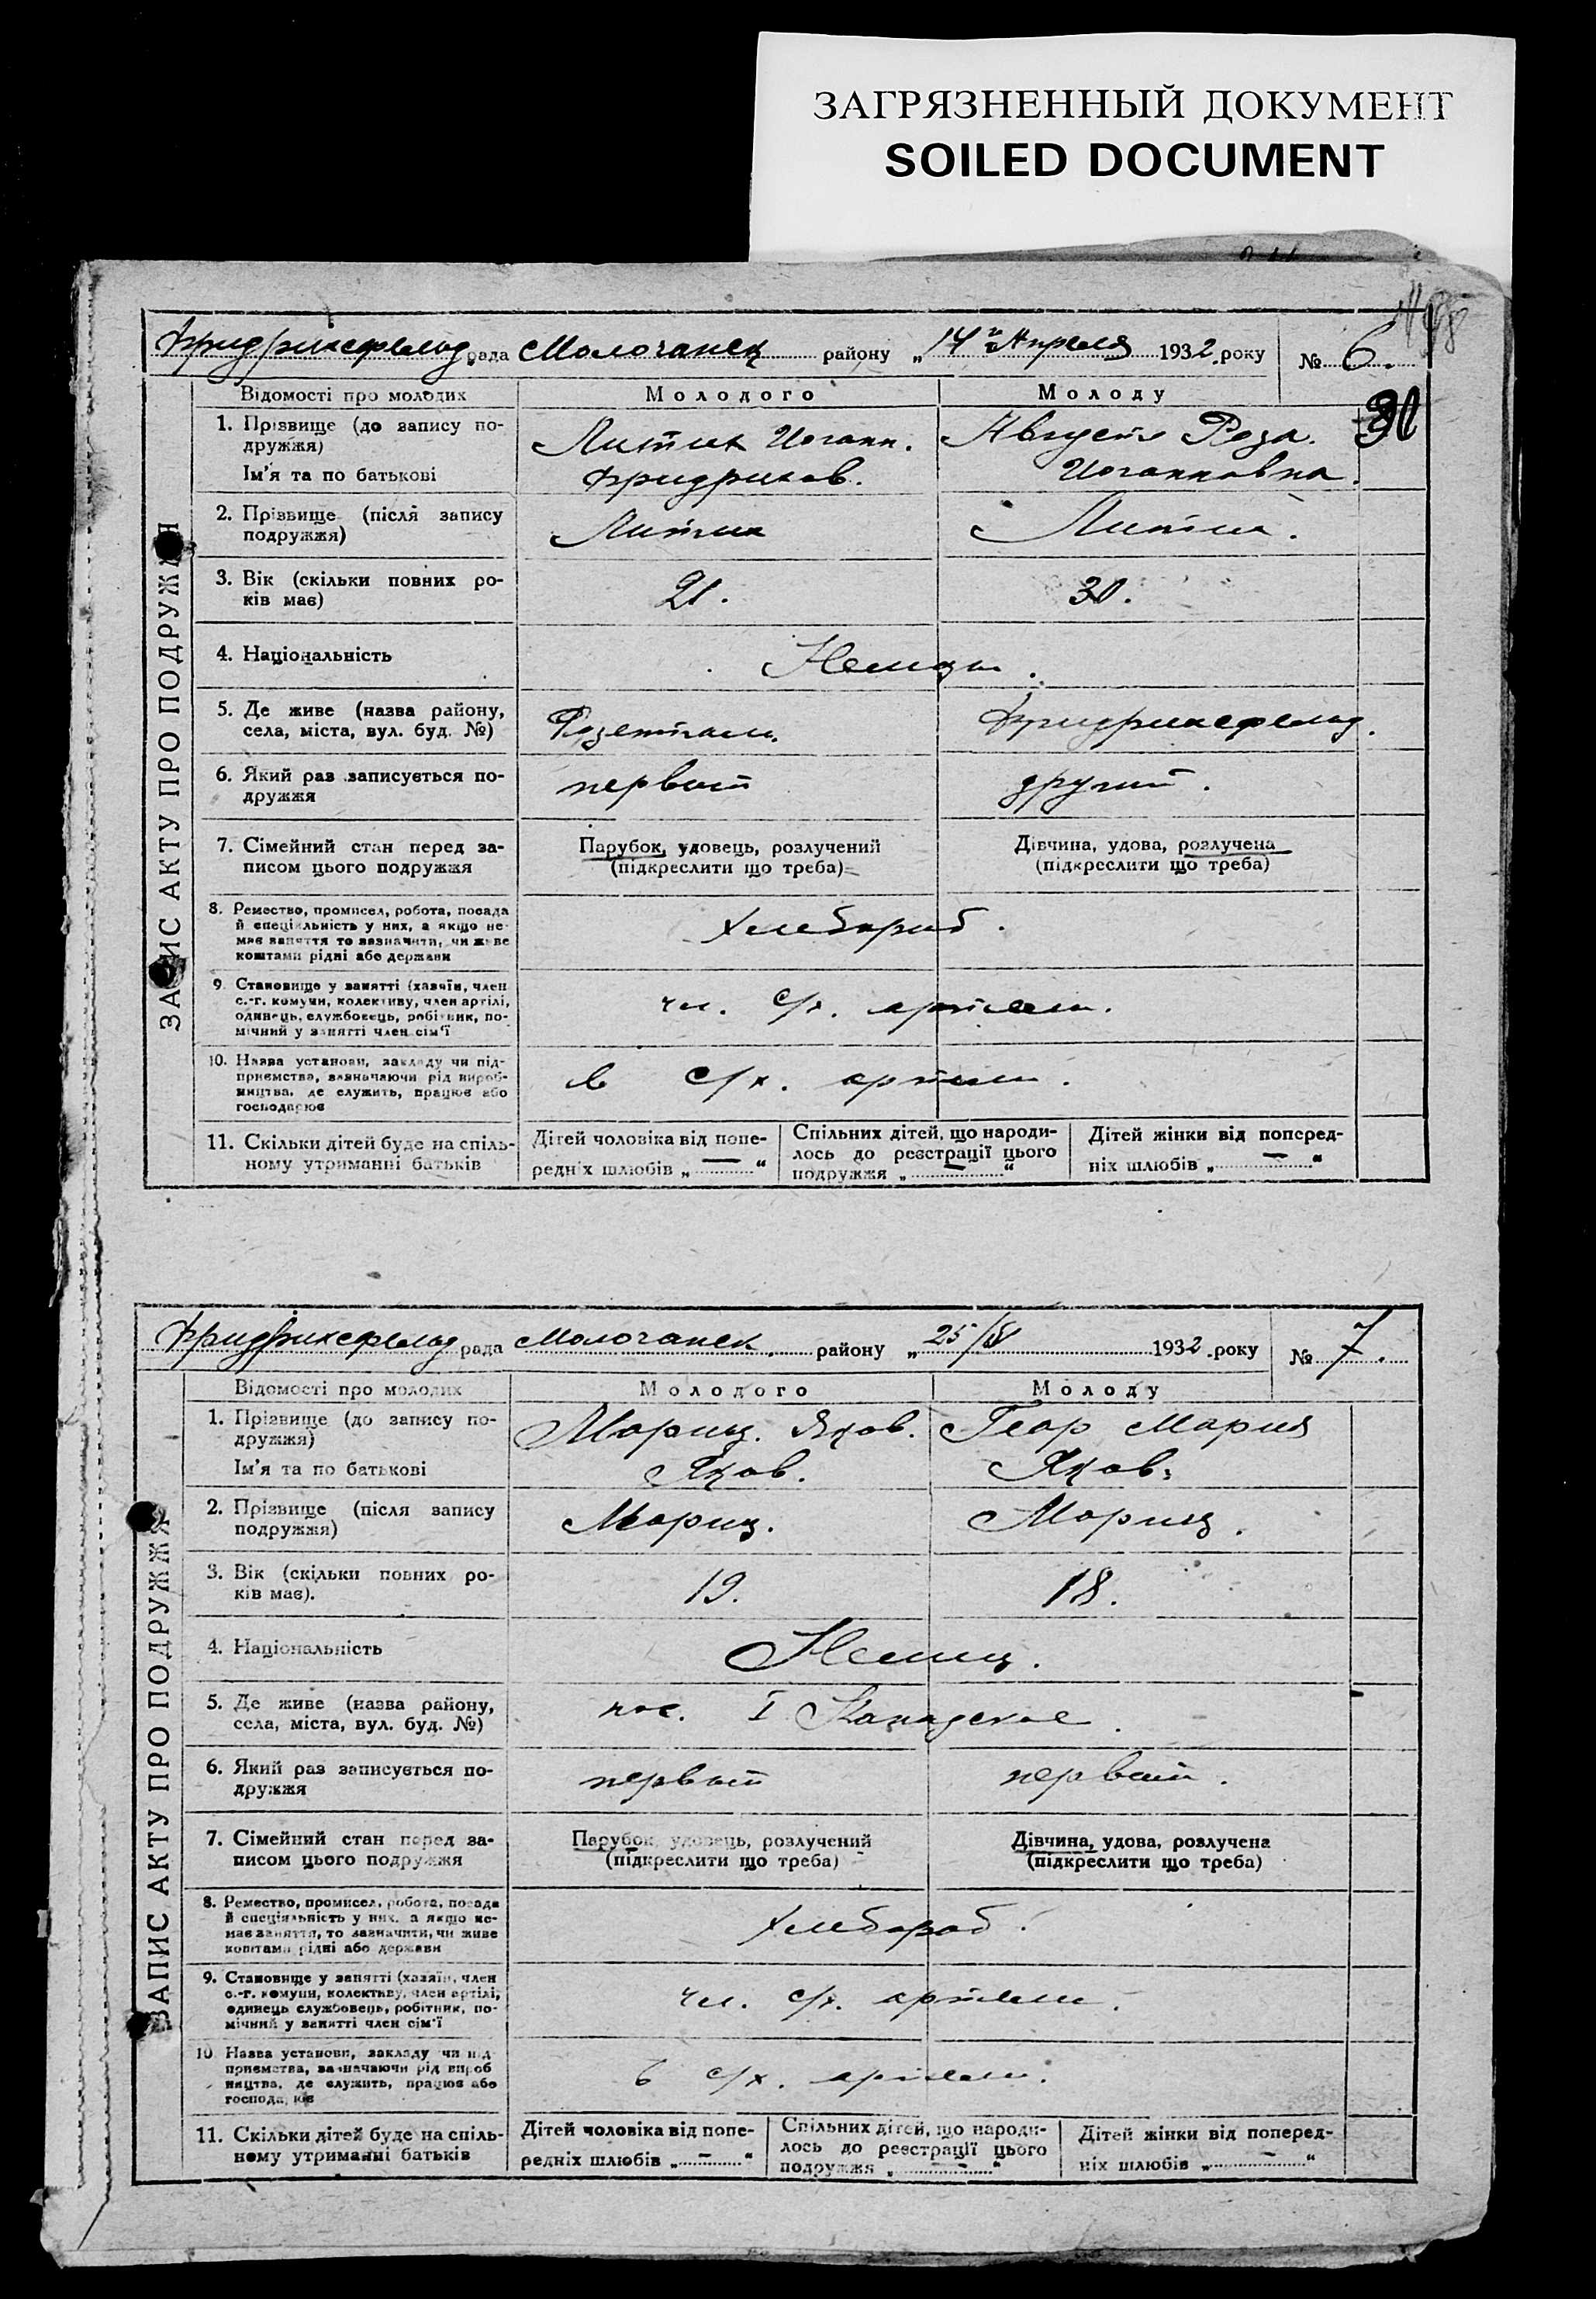 ЗАГРЯЗНЕННЫЙ ДОКУМЕНТ
SOILED DOCUMENT
Фридрихсфельд рада Молочанск району „14го Апреля 1932 року № 6.
ЗАПИС АКТУ ПРО ПОДРУЖЖЯ
Відомості про молодих Молодого Молоду
1. Прізвище (до запису по-
дружжя)
Ім'я та по батькові
Литтих Иоганн.
Фридрихов.
Август Роза.
Иоганновна.
30
2. Прізвище (після запису
подружжя)
Литтих
Литтих.
3. Вік (скільки повних ро-
ків має)
21.
30.
4. Національність
Немцы.
5. Де живе (назва району,
села, міста, вул. буд. №)
Розенталь.
Фридрихсфельд.
6. Який раз записується по-
дружжя
первый
другий.
7. Сімейний стан перед за-
писом цього подружжя
Парубок, удовець, розлучений
(підкреслити що треба)
Дівчина, удова, розлучена
(підкреслити що треба)
8. Ремество, промисел, робота, посада
й спеціяльність у них, а якщо не
має заняття то зазначити, чи живе
коштами рідні або держави
Хлебороб.
9. Становище у занятті (хазяїн, член
с.-г. комуни, колективу, член артілі,
одинець, службовець, робітник, по-
мічний у занятті член сім'ї
чл. с/х. артели.
10. Назва установи, закладу чи під-
приємства, зазначаючи рід вироб-
ництва, де служить, працює або
господарює
в с/х. артели.
11. Скільки дітей буде на спіль-
ному утриманні батьків
Дітей чоловіка від попе-
редніх шлюбів „ — “
Спільних дітей, що народи-
лось до реєстрації цього
подружжя „ — “
Дітей жінки від поперед-
ніх шлюбів „ — “
Фридрихсфельд рада Молочанск. району „25/IV 1932 року № 7.
ЗАПИС АКТУ ПРО ПОДРУЖЖЯ
Відомості про молодих Молодого Молоду
1. Прізвище (до запису по-
дружжя)
Ім'я та по батькові
Мориц. Яков.
Яков.
Геор Мария
Яков.
2. Прізвище (після запису
подружжя)
Мориц.
Мориц.
3. Вік (скільки повних ро-
ків має).
19.
18.
4. Національність
Немец.
5. Де живе (назва району,
села, міста, вул. буд. №)
пос. I Канадское.
6. Який раз записується по-
дружжя
первый
первый.
7. Сімейний стан перед за-
писом цього подружжя
Парубок, удовець, розлучений
(підкреслити що треба)
Дівчина, удова, розлучена
(підкреслити що треба)
8. Ремество, промисел, робота, посада
й спеціяльність у них, а якщо не-
має заняття, то зазначити, чи живе
коштами рідні або держави
Хлебороб.
9. Становище у занятті (хазяїн, член
с.-г. комуни, колективу, член артілі,
одинець службовець, робітник, по-
мічний у занятті член сім'ї
чл. с/х. артели.
10. Назва установи, закладу чи під
приємства, зазначаючи рід вироб
ництва, де служить, працює або
господарює
в с/х. артели.
11. Скільки дітей буде на спіль-
ному утриманні батьків
Дітей чоловіка від попе-
редніх шлюбів „ — “
Спільних дітей, що народи-
лось до реєстрації цього
подружжя „ — “
Дітей жінки від поперед-
ніх шлюбів „ — “